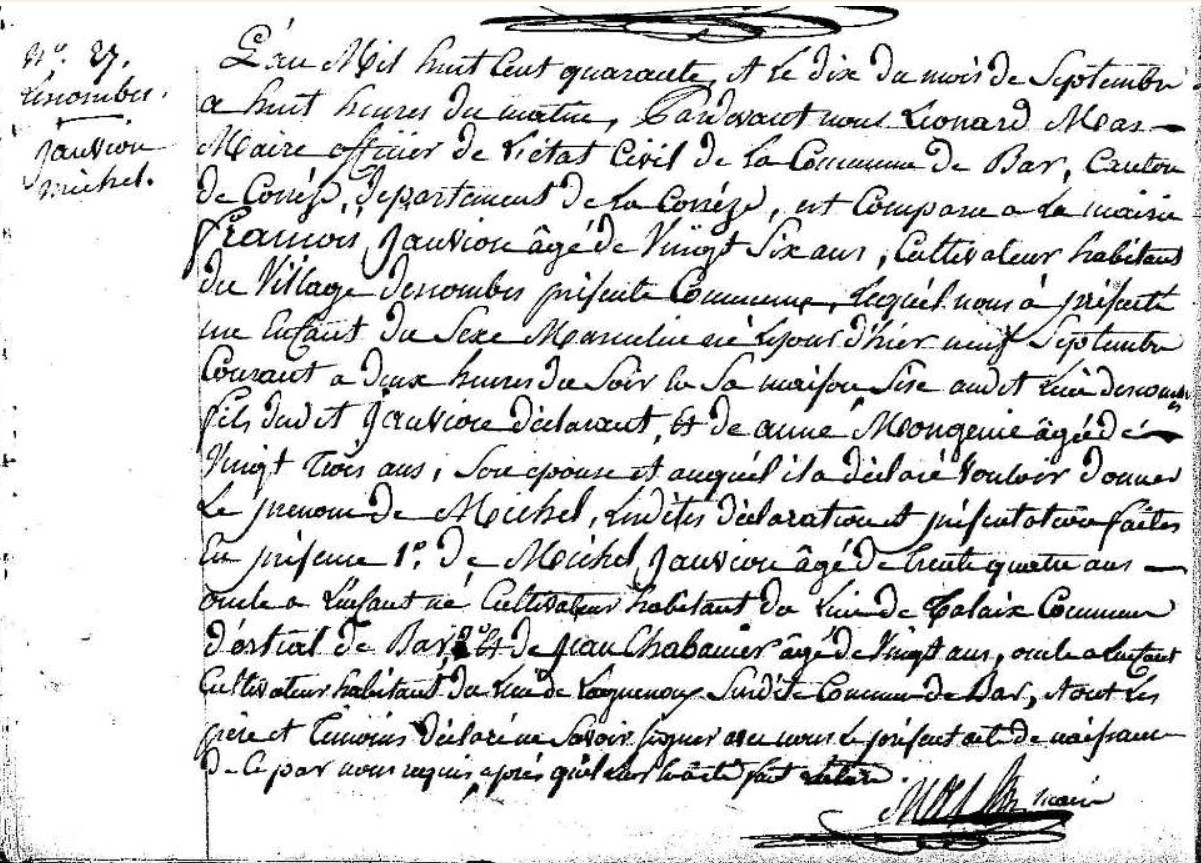 N°. 27.
Lesombes.
Jauvion
michel.
L'an Mil huit Cent quarante, et Le dix du mois de Septembre
a huit heures du matin, Pardevant nous Léonard Mas
Maire officier de l'état Civil de La Commune de Bar, Canton
de Corrèze, département de La Corrèze, est Comparu a La mairie
François Jauvion âgé de Vingt Six ans, Cultivateur habitant
du Village présente Commune, Lequél nous à présenté
un Enfant du Sexe Masculin né Lejour d'hier neuf Septembre
Courant a deux heures du Soir en Sa maison Sise audit Lieu
fils dudit Jauvion déclarant, Et de anne Mongenie âgée de
Vingt Trois ans, Son epouse et auquél il a déclaré Vouloir donner
Le prenom de Michel, Lesdites déclaration et présentation faites
En présence 1°. de Michel Jauvion âgé de trente quatre ans
oncle a L'enfant né Cultivateur habitant du Lieu de Talaix Commune
de Bar 2° Et de Jean Chabanier âgé de Vingt ans, oncle a Lenfant
Cultivateur habitant du Lieu de Susdite Commune de Bar, et ont Les
père et Témoins déclaré ne Savoir signer avec nous Le présent acte de naissance
de Ce par nous requis après qu'il Leur en a été fait Lecture.
Mas maire